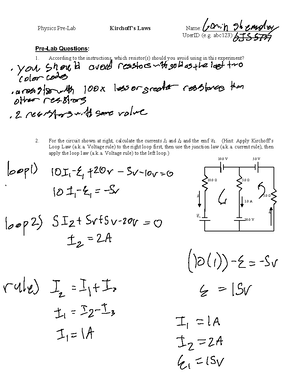 Physics Pre-Lab Kirchoff's Laws Name
UserID (e.g. abc123)
Pre-Lab Questions:
1. According to the instructions, which resistor(s) should you avoid using in this experiment?
• you should avoid resistors with as the last two
color codes
• a resistor with 100x less or greater resistances than
other resistors
• 2 resistors with same value
2. For the circuit shown at right, calculate the currents I₁ and I₂ and the emf ε₁. (Hint: Apply Kirchoff's
Loop Law (a.k.a. Voltage rule) to the right loop first, then use the junction law (a.k.a. current rule), then
apply the loop law (a.k.a. voltage rule) to the left loop.)
loop 1) 10I₁-ε₁+20v-5v-10v=0
10I₁-ε₁=-5v
loop 2) 5I₂+5v+5v-20v=0
I₂=2A
rule) I₂=I₁+I₃
I₁=I₂-I₃
I₁=1A
(10(1))-ε=-5v
ε=15v
I₁=1A
I₂=2A
ε₁=15v